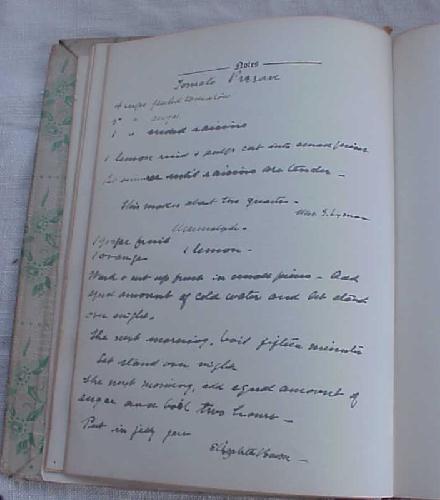 Notes
Tomato
4 cups peeled tomatoes
" sugar
1 " seeded raisins
1 lemon rind & pulp cut into small pieces
simmer until raisins are tender -
This makes about two quarts -
Mrs.
1 grape fruit
1 orange 1 lemon -
Wash & cut up fruit in small pieces - Add
equal amount of cold water and let stand
over night.
The next morning, boil fifteen minutes
Let stand over night
The next morning, add equal amount of
sugar and boil two hours -
Put in jelly jars
Elizabeth